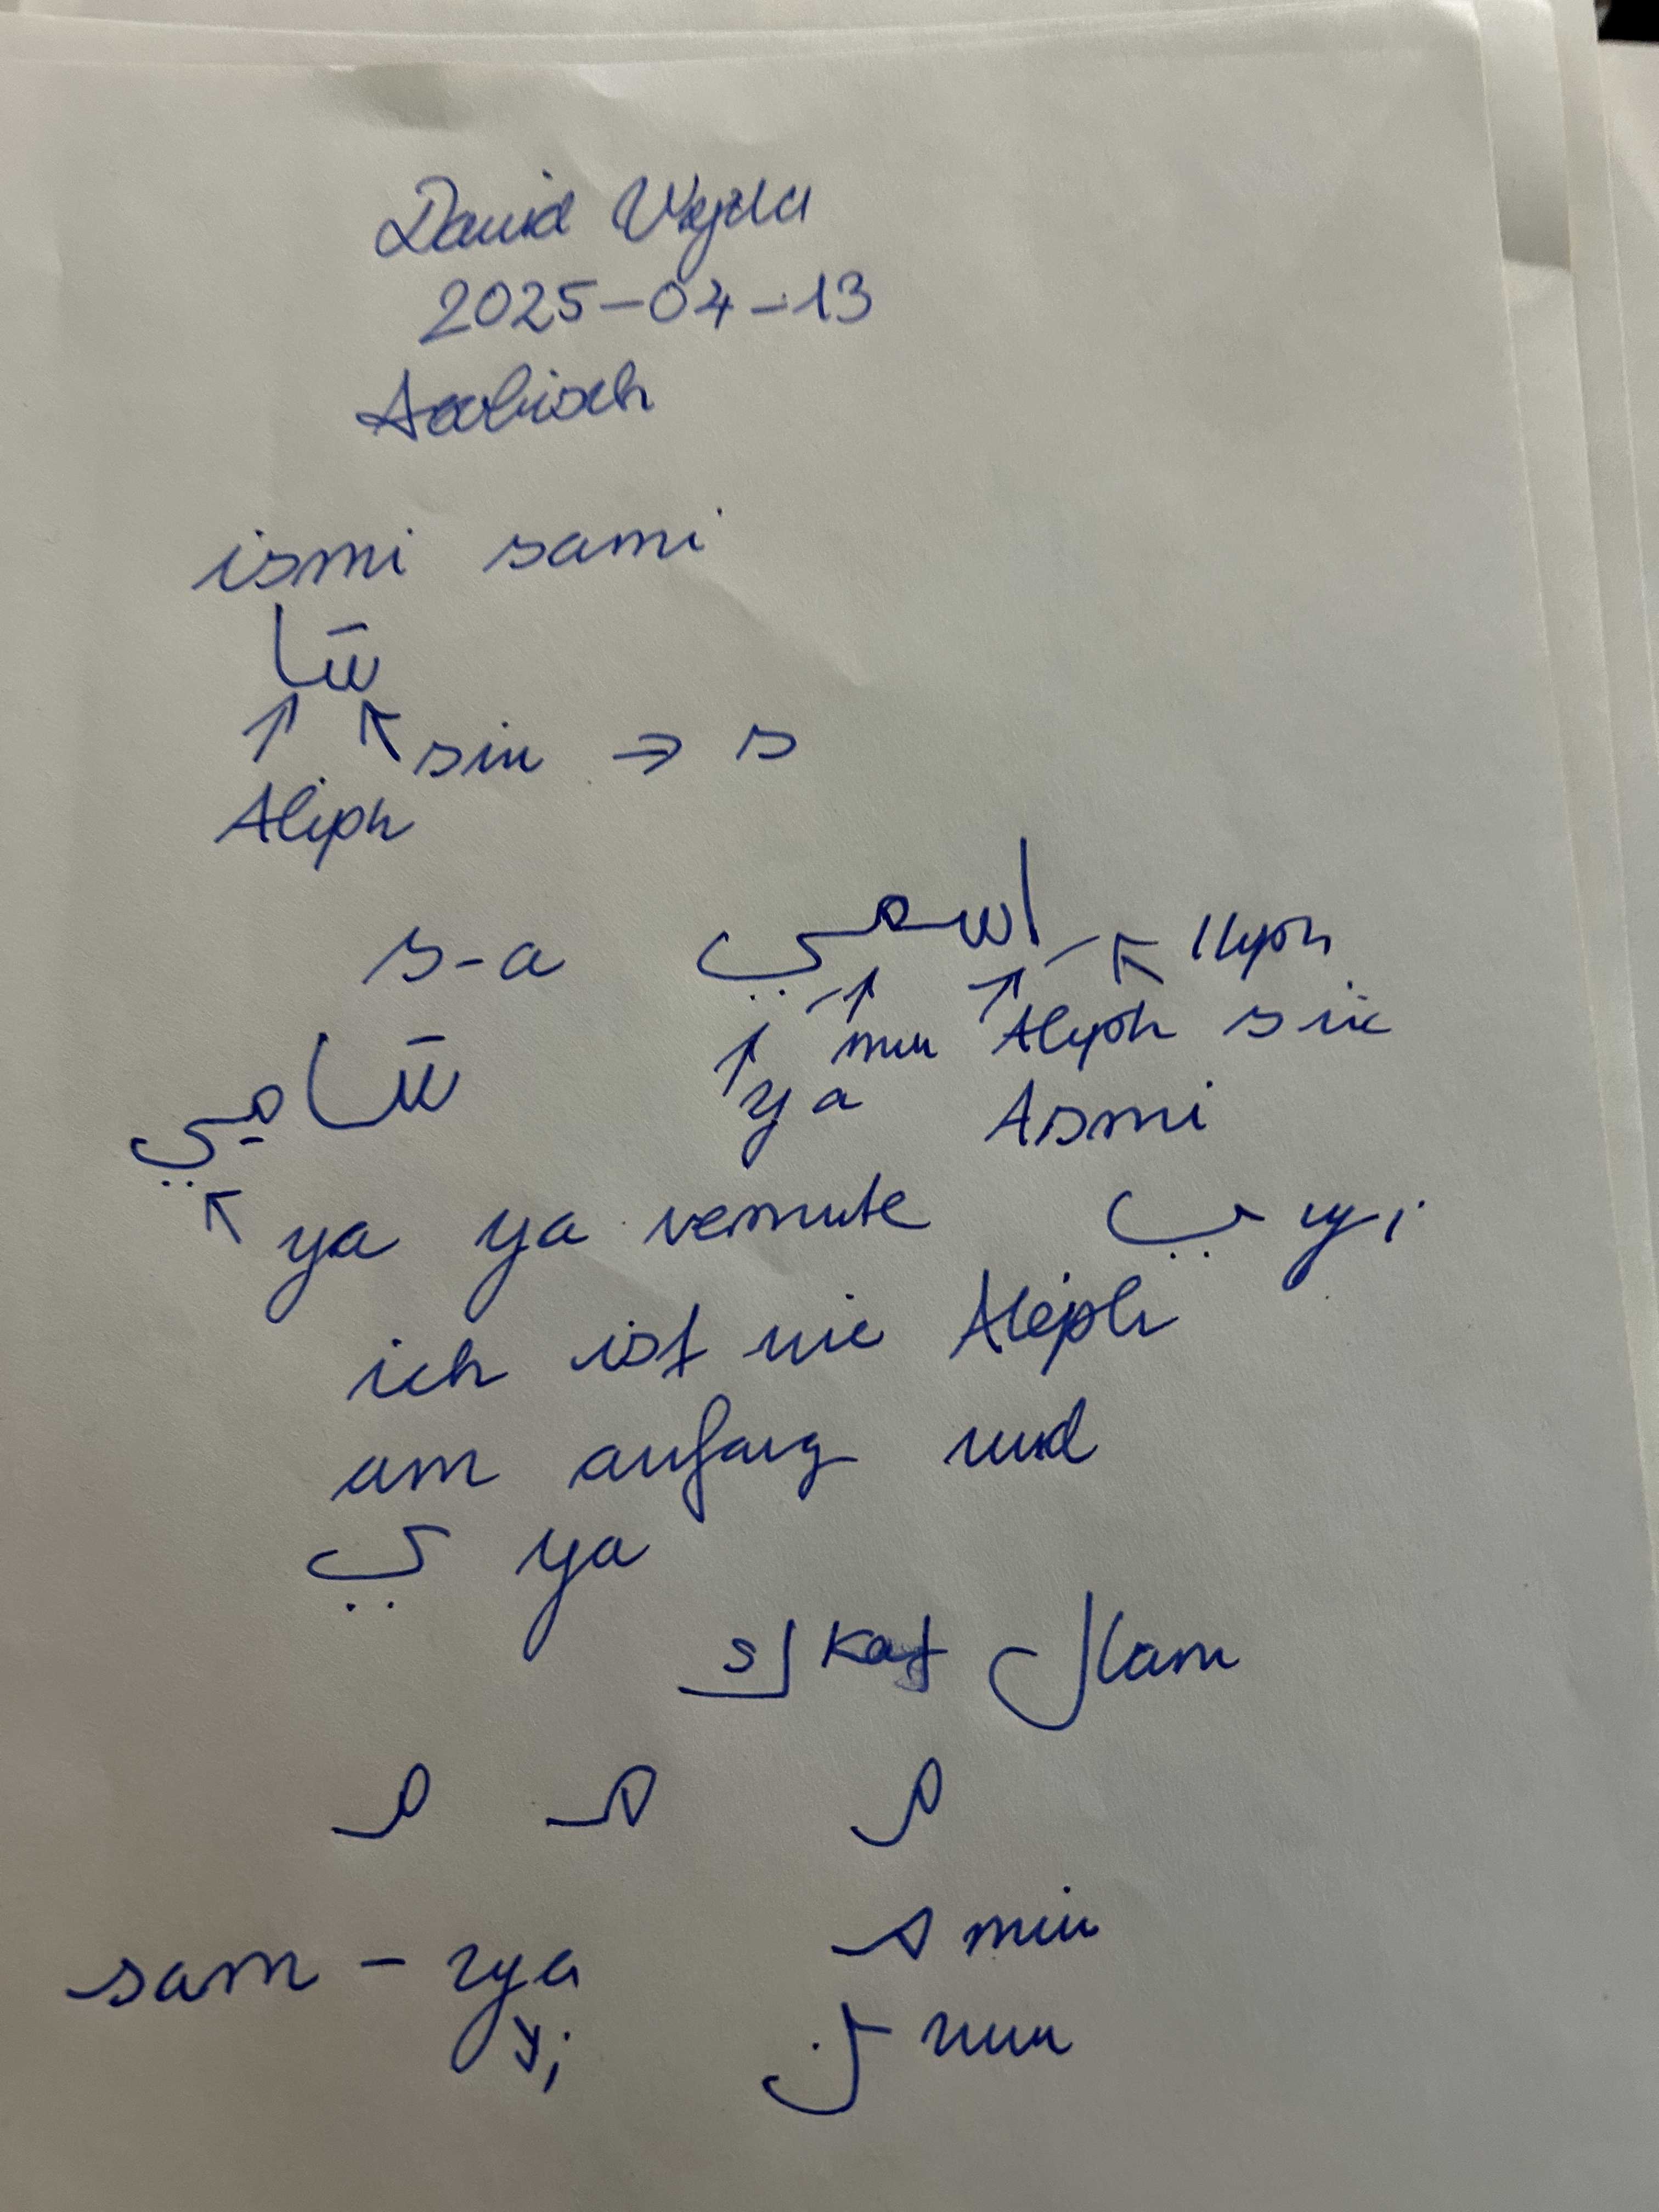 David Vajda
2025-04-13
Arabisch
ismi sami
سَا
sin → s
Aliph
s-a اسمي
Aliph sin
ya
Asmi
سَامِي
ya ya vermute ي yi
ich ist nie Aleph
am anfang und
ي ya
ك Kaf ل lam
م م م
sam - ya
yi
م mim
ن nun